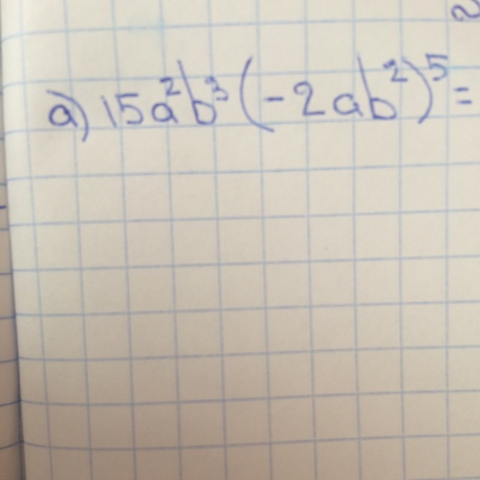 a) 15a²b³(-2ab²)⁵=